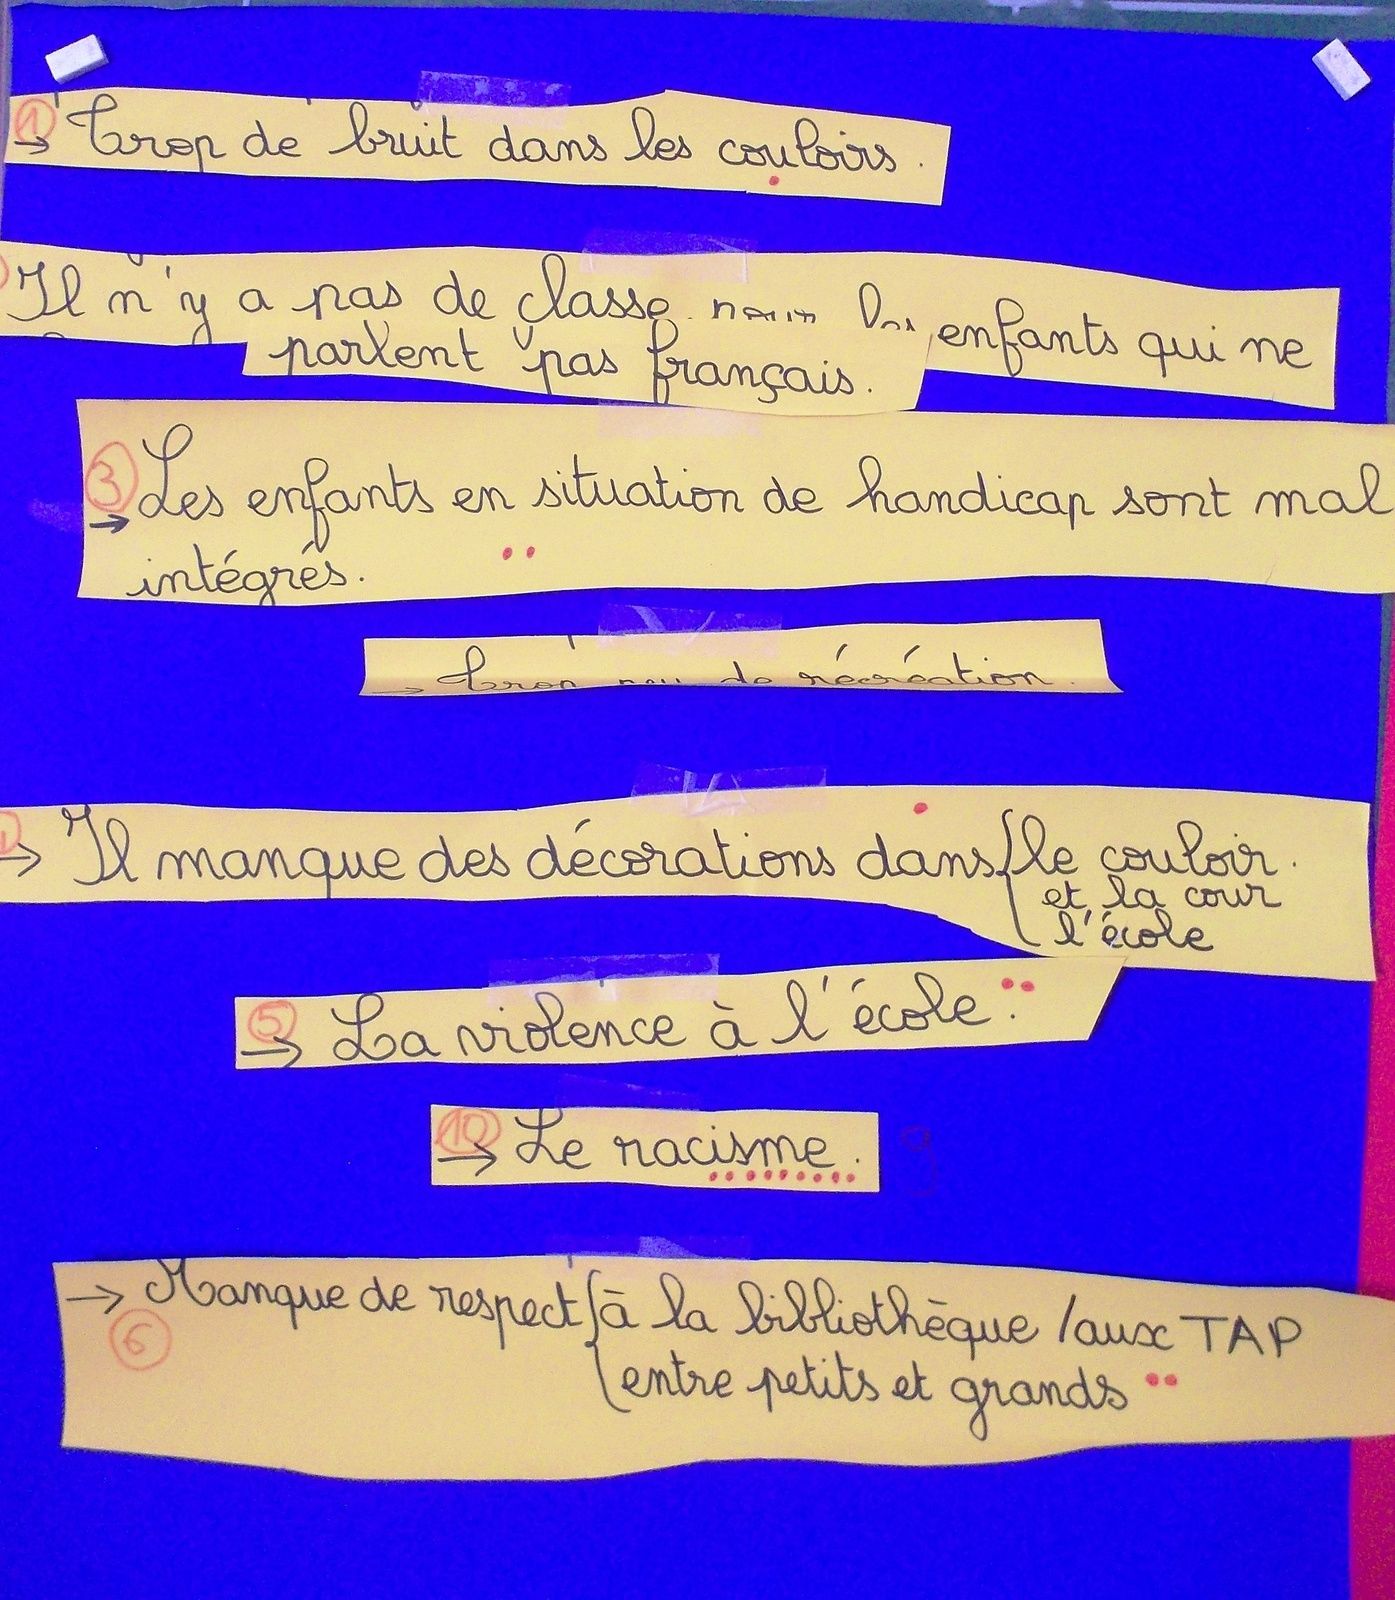 ① → Trop de bruit dans les couloirs.
Il n'y a pas de classe enfants qui ne
parlent pas français.
③ → Les enfants en situation de handicap sont mal
intégrés.
→ Trop peu de récréation.
→ Il manque des décorations dans le couloir.
et la cour
l'école
⑤ → La violence à l'école.
⑩ → Le racisme.
→ Manque de respect à la bibliothèque / aux TAP
⑥ entre petits et grands